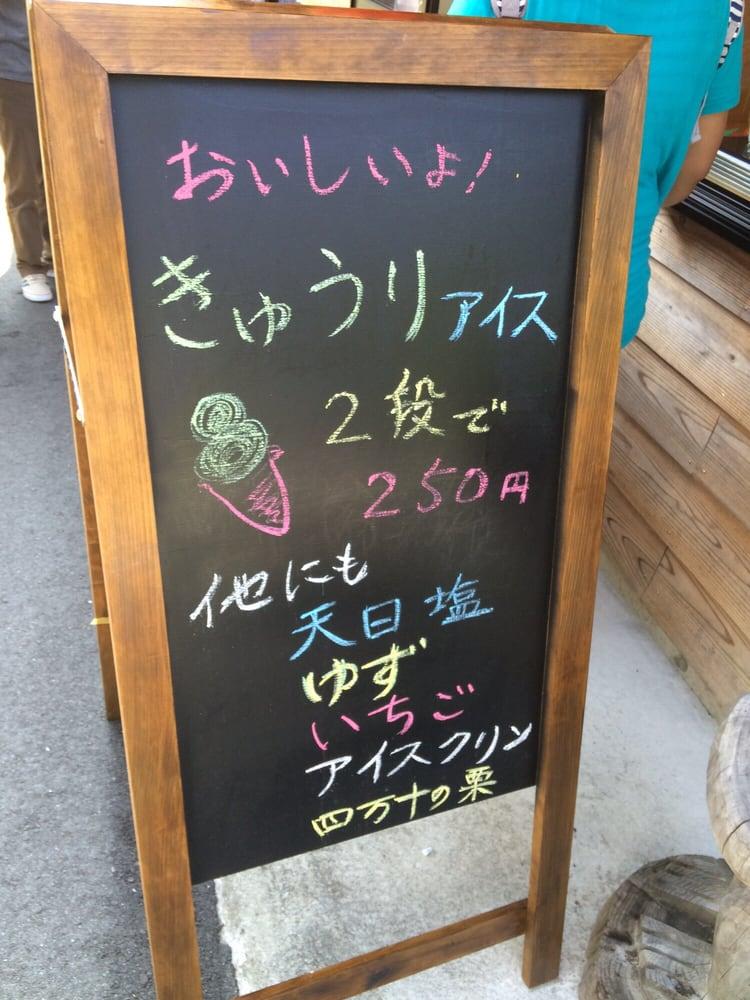 おいしいよ!
きゅうりアイス
2段で
250円
他にも
天日塩
ゆず
いちご
アイスクリン
四万十の栗